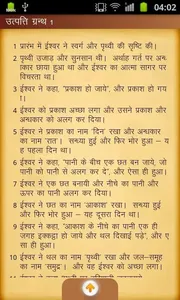 04:02
उत्पत्ति ग्रन्थ 1
1 प्रारंभ में ईश्वर ने स्वर्ग और पृथ्वी की सृष्टि की।
2 पृथ्वी उजाड़ और सुनसान थी। अर्थाह गर्त पर अन्धकार छाया हुआ था और ईश्वर का आत्मा सागर पर
विचरता था।
3 ईश्वर ने कहा, 'प्रकाश हो जाये', और प्रकाश हो ग
या।
4 ईश्वर को प्रकाश अच्छा लगा और उसने प्रकाश और
अन्धकार को अलग कर दिया।
5 ईश्वर ने प्रकाश का नाम 'दिन' रखा और अन्धकार
का नाम 'रात'। सन्ध्या हुई और फिर भोर हुआ - य
ह पहला दिन था।
6 ईश्वर ने कहा, 'पानी के बीच एक छत बन जाये, जो
पानी को पानी से अलग कर दे', और ऐसा ही हुआ।
7 ईश्वर ने एक छत बनायी और नीचे का पानी और
ऊपर का पानी अलग कर दिया।
8 ईश्वर ने छत का नाम 'आकाश' रखा। सन्ध्या हुई
और फिर भोर हुआ - यह दूसरा दिन था।
9 ईश्वर ने कहा, 'आकाश के नीचे का पानी एक ही
जगह इकट्ठा हो जाये और थल दिखाई पड़े', और ऐ
सा ही हुआ।
10 ईश्वर ने थल का नाम 'पृथ्वी' रखा और जल-समूह
का नाम 'समुद्र'। और वह ईश्वर को अच्छा लगा।